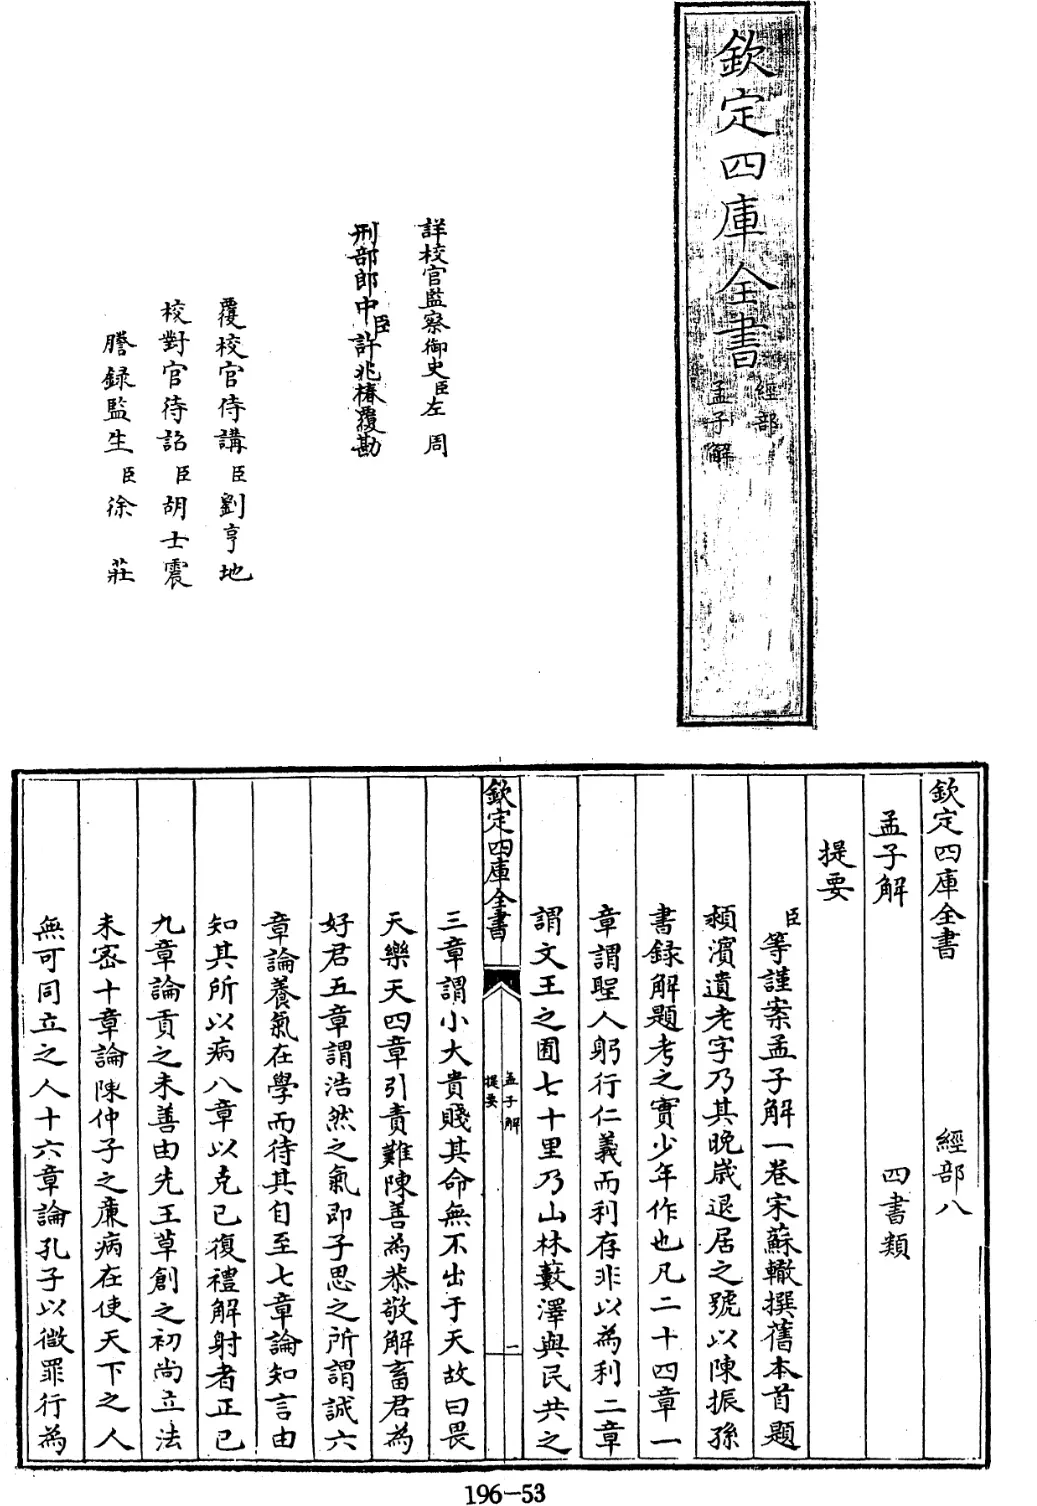 欽定四庫全書
經部
孟子解
詳校官監察御史臣左周
刑部郎中臣許兆椿覆勘
覆校官侍講臣劉亨地
校對官待詔臣胡士震
謄錄監生臣徐莊
欽定四庫全書 經部八
孟子解 四書類
提要
臣等謹案孟子解一卷宋蘇轍撰舊本首題
頴濱遺老字乃其晚歲退居之號以陳振孫
書録解題考之實少年作也凡二十四章一
章謂聖人躬行仁義而利存非以為利二章
謂文王之囿七十里乃山林藪澤與民共之
欽定四庫全書
孟子解
提要
一
三章謂小大貴賤其命無不出于天故曰畏
天樂天四章引責難陳善為恭敬解畜君為
好君五章謂浩然之氣即子思之所謂誠六
章論養氣在學而待其自至七章論知言由
知其所以病八章以克己復禮解射者正己
九章論貢之未善由先王草創之初尚立法
未宻十章論陳仲子之亷病在使天下之人
無可同立之人十六章論孔子以微罪行為
196-53